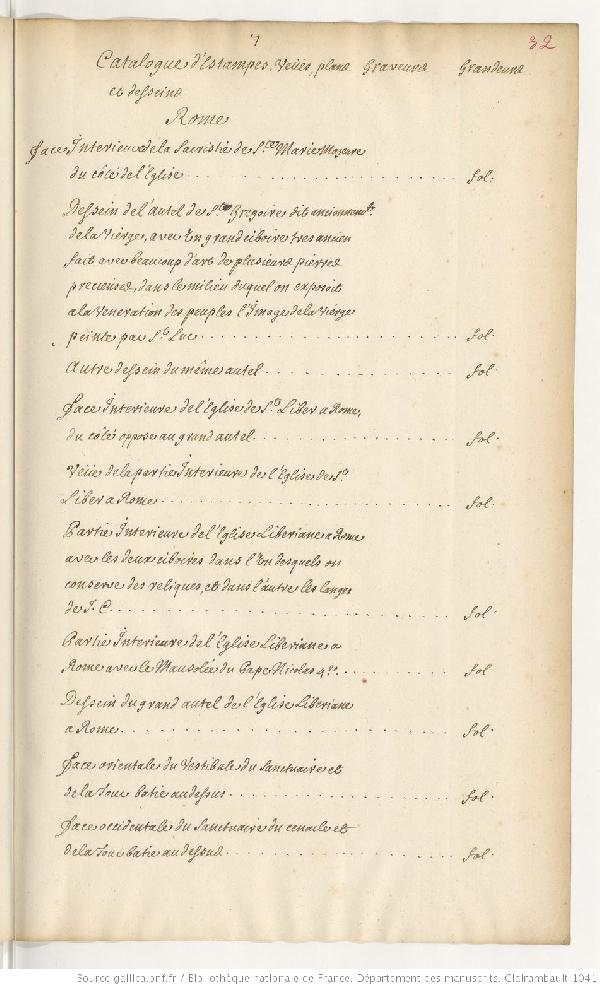 7
32
Catalogue d'Estampes, Veües, plans Graveurs Grandeurs
et desseins
Rome
face Interieure de la Sacristie de S.te Marie Majeure
du côté de l'Eglise fol.
Dessein de l'autel de S.t Gregoire dit anciennem.t
de la Vierge, avec Un grand ciboire tres ancien
fait avec beaucoup d'art de plusieurs pierres
precieuses, dans le milieu duquel on exposoit
a la Veneration des peuples l'Image de la Vierge
peinte par S.t Luc fol
Autre dessein du même autel fol
face Interieure de l'Eglise de S.t Liber a Rome,
du côté opposé au grand autel fol.
Veüe de la partie Interieure de l'Eglise de S.t
Liber a Rome fol.
Partie Interieure de l'Eglise Liberiane a Rome
avec les deux ciboires dans l'Un desquels on
conserve des reliques, et dans l'autre les langes
de J. C. fol
Partie Interieure de l'Eglise Liberiane a
Rome avec le Mausolée du Pape Nicolas 4.e fol
Dessein du grand autel de l'Eglise Liberiane
a Rome fol.
face orientale du Vestibule du Sanctuaire et
de la Tour batie au dessus fol.
face occidentale du Sanctuaire du cenacle et
de la Tour batie au dessus fol.
Source gallica.bnf.fr / Bibliothèque nationale de France. Département des manuscrits. Clairambault 1041